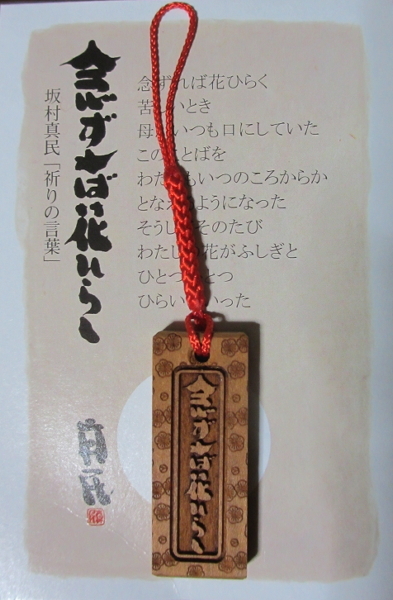 念ずれば花ひらく
坂村真民「祈りの言葉」
念ずれば花ひらく
苦 いとき
母 いつも口にしていた
この とばを
わた もいつのころからか
となえ ようになった
そうし そのたび
わたし 花がふしぎと
ひとつ とつ
ひらい いった
真民
念ずれば花ひらく